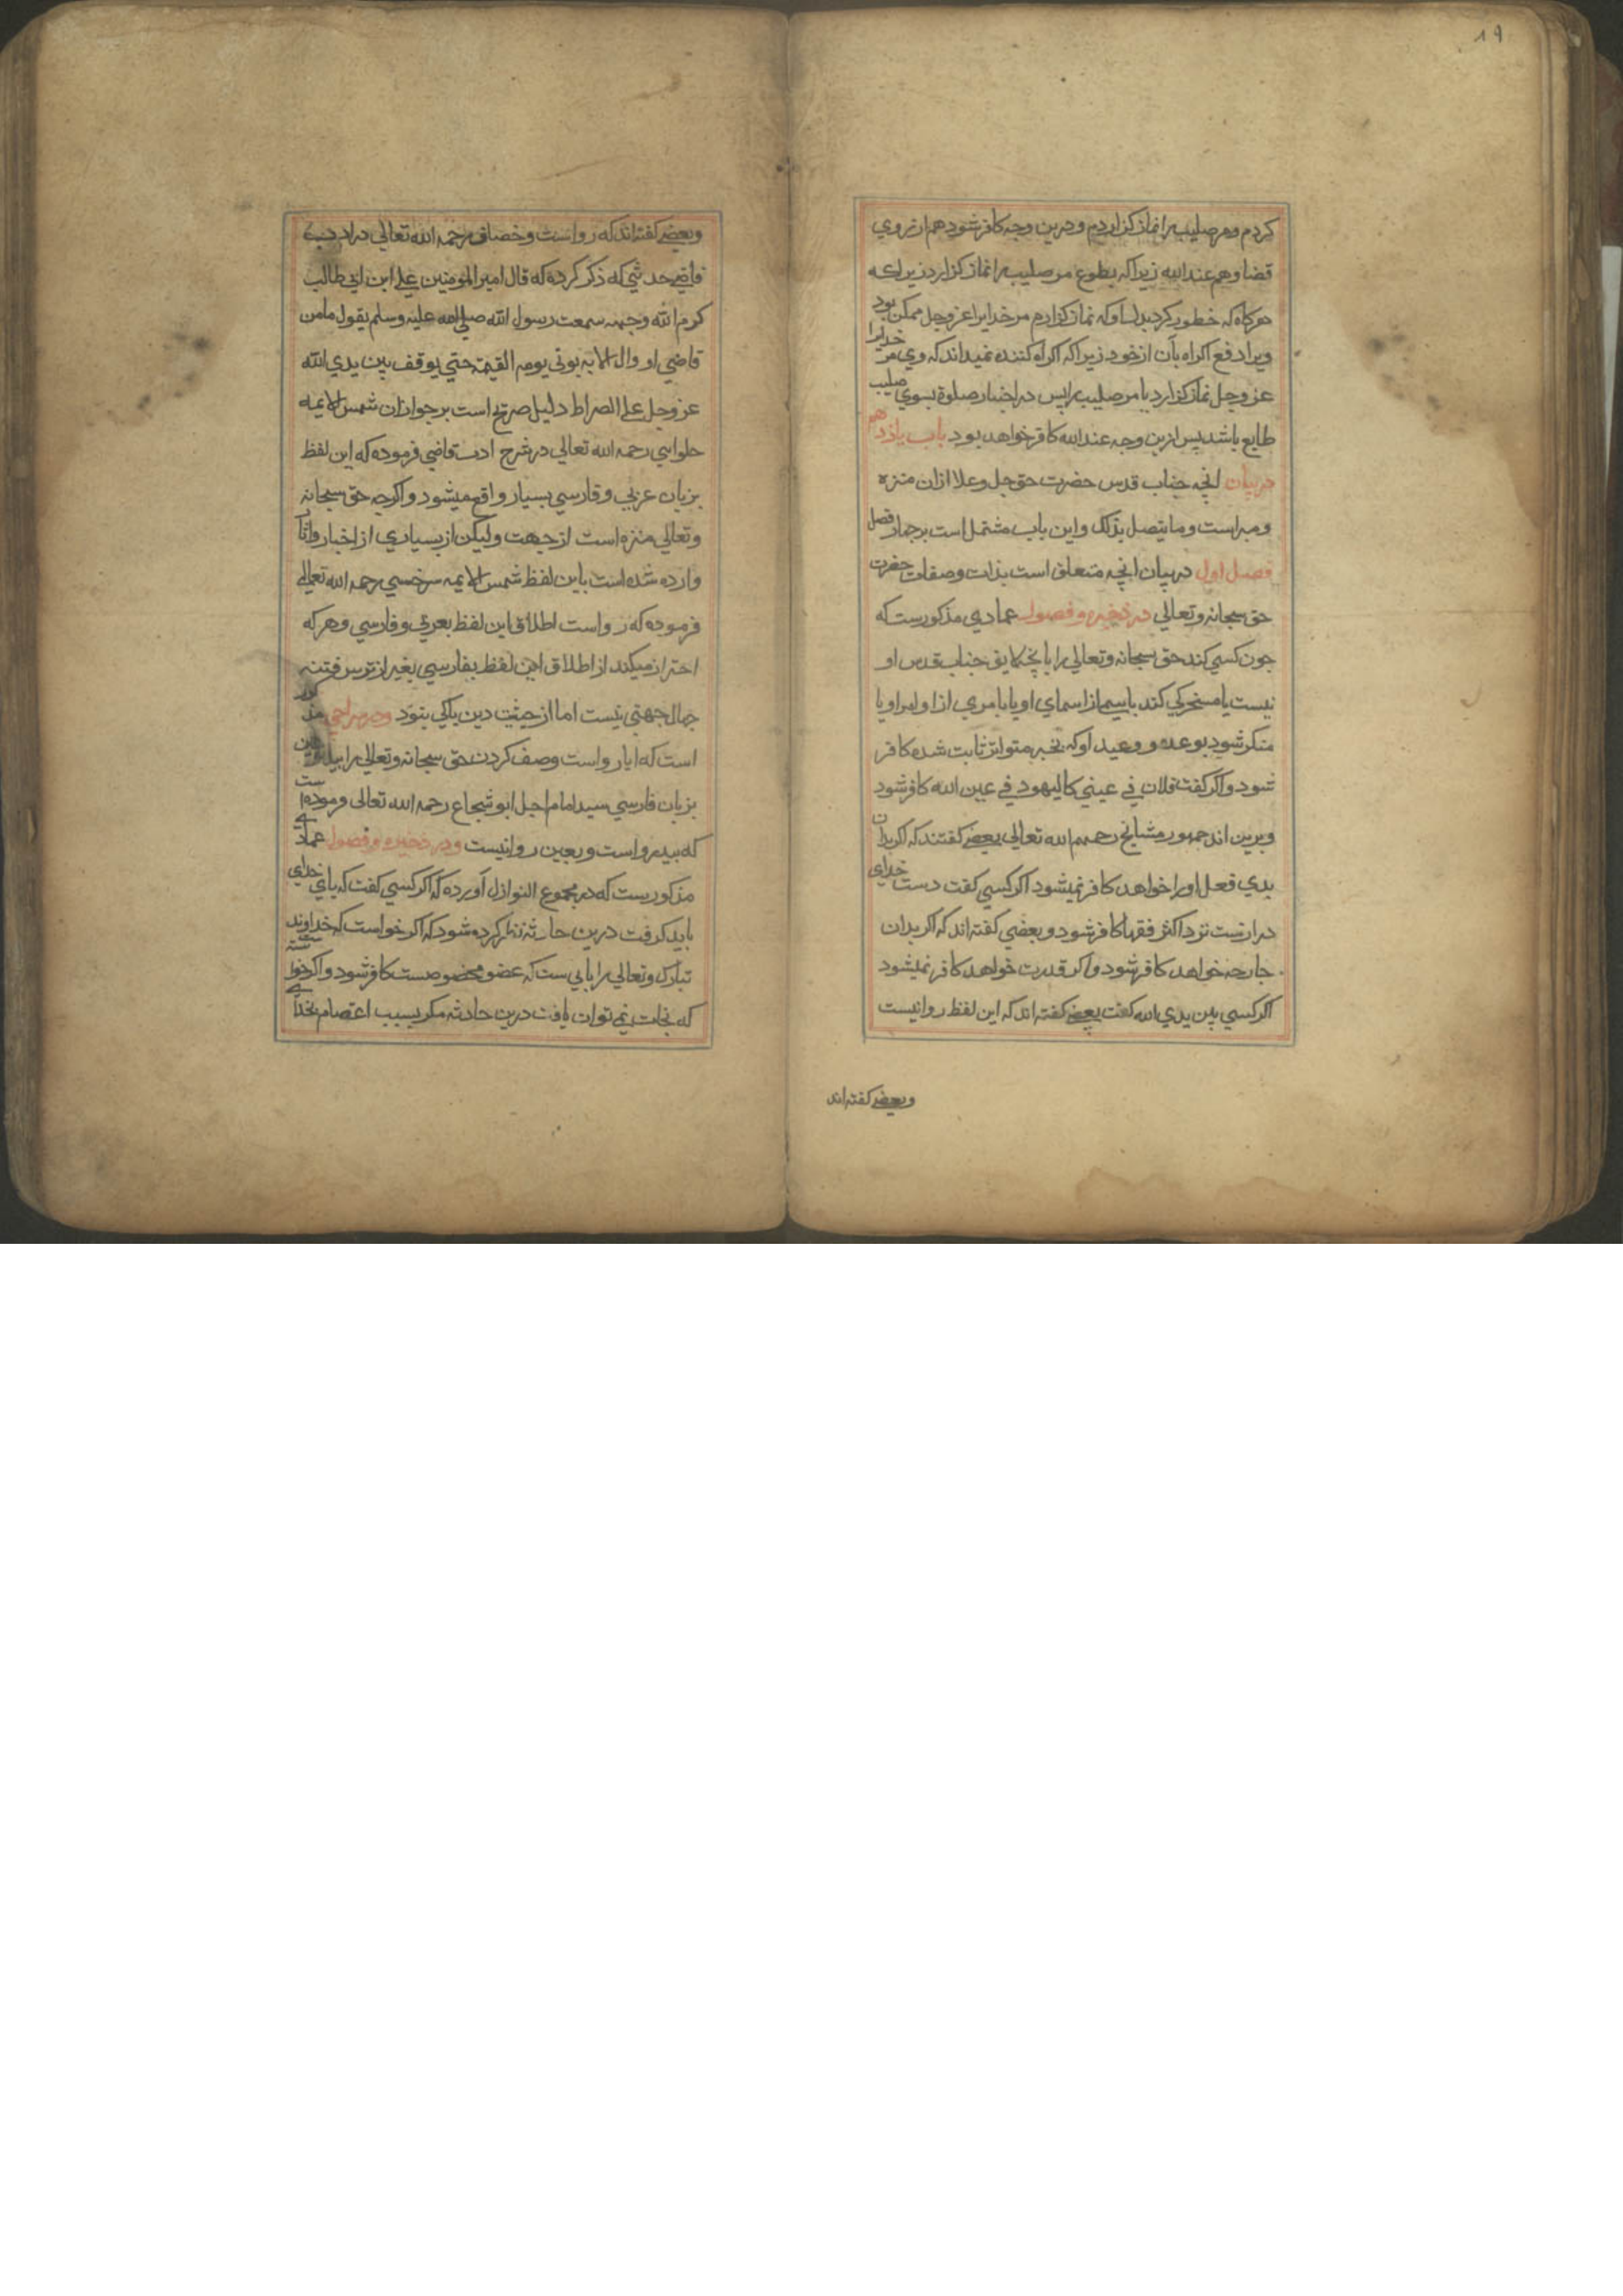 ۱۹
کردم و مر صلیب را نماز کزاردم و درین وجه کافر شود هم از روی
قضا و هم عند الله زیرا که بطوع مر صلیب را نماز کزارد زیرا که
هرکاه که خطور کرد بدل او که نماز کزارم مر خدایرا عز وجل ممکن بود
ویرا دفع اکراه بآن از خود زیرا که اکراه کننده نمیداند که وی مر خدایرا
عز وجل نماز کزارد یا مر صلیب را پس در اختیار صلوة بسوی صلیب
طایع باشد پس ازین وجه عند الله کافر خواهد بود باب یازدهم
در بیان انچه جناب قدس حضرت حق جل وعلا ازان منزه
ومبراست وما یتصل بذلک واین باب مشتمل است برچهار فصل
فصل اول در بیان انچه متعلق است بذات وصفات حضرت
حق سبحانه وتعالی در ذخیره و فصول عمادی مذکورست که
چون کسی کند حق سبحانه وتعالی را بانچه لایق جناب قدس او
نیست یا مسخرکی کند باسمی از اسمای او یا بامری از اوامر او یا
منکر شود بوعده و وعید او که بخبر متواتر ثابت شده کافر
شود واکر کفت فلان فی عینی کالیهود فی عین الله کافر شود
وبرین اند جمهور مشایخ رحمهم الله تعالی بعضی کفتند که اکر بدان
بدی فعل او را خواهد کافر نمیشود اکر کسی کفت دست خدای
درازست نزد اکثر فقها کافر شود و بعضی کفته اند که اکر بدان
جارحه خواهد کافر شود و اکر قدرت خواهد کافر نمیشود
اکر کسی بین یدی الله کفت بعضی کفته اند که این لفظ روا نیست
وبعضی کفته اند
وبعضی کفته اند که رواست وخصاف رحمه الله تعالی در ادب
قاضی حدیثی که ذکر کرده که قال امیر المومنین علی ابن ابی طالب
کرم الله وجهه سمعت رسول الله صلی الله علیه وسلم یقول ما من
قاضی او وال الا یه یوتی یوم القیمة حتی یوقف بین یدی الله
عز وجل علی الصراط دلیل صریح است برجواز ان شمس الایمه
حلوایی رحمه الله تعالی در شرح ادب قاضی فرموده که این لفظ
بزبان عربی وفارسی بسیار واقع میشود واکرچه حق سبحانه
وتعالی منزه است از جهت ولیکن از بسیاری از اخبار واثار
وارده شده است باین لفظ شمس الایمه سرخسی رحمه الله تعالی
فرموده که رواست اطلاق این لفظ بعربی وفارسی وهرکه
احتراز میکند از اطلاق این لفظ بفارسی بغیر از ترس فتنه
جهال جهتی نیست اما از حیثیت دین باکی نبود ودر سراجی مذکور
است که ایا رواست وصف کردن حق سبحانه وتعالی را بید
بزبان فارسی سید امام اجل ابو شجاع رحمه الله تعالی فرموده است
که بید رواست وبعین روا نیست ودر ذخیره و فصول عمادی
مذکورست که در مجموع النوازل آورده که اکر کسی کفت که پای خدای
باید کرفت درین حادثه نظر کرده شود که اکر خواست که خداوند
تبارک وتعالی را پایی ست که عضو مخصوصست کافر شود واکر خواسته
که نجات نمی توان یافت درین حادثه مکر بسبب اعتصام بخدا